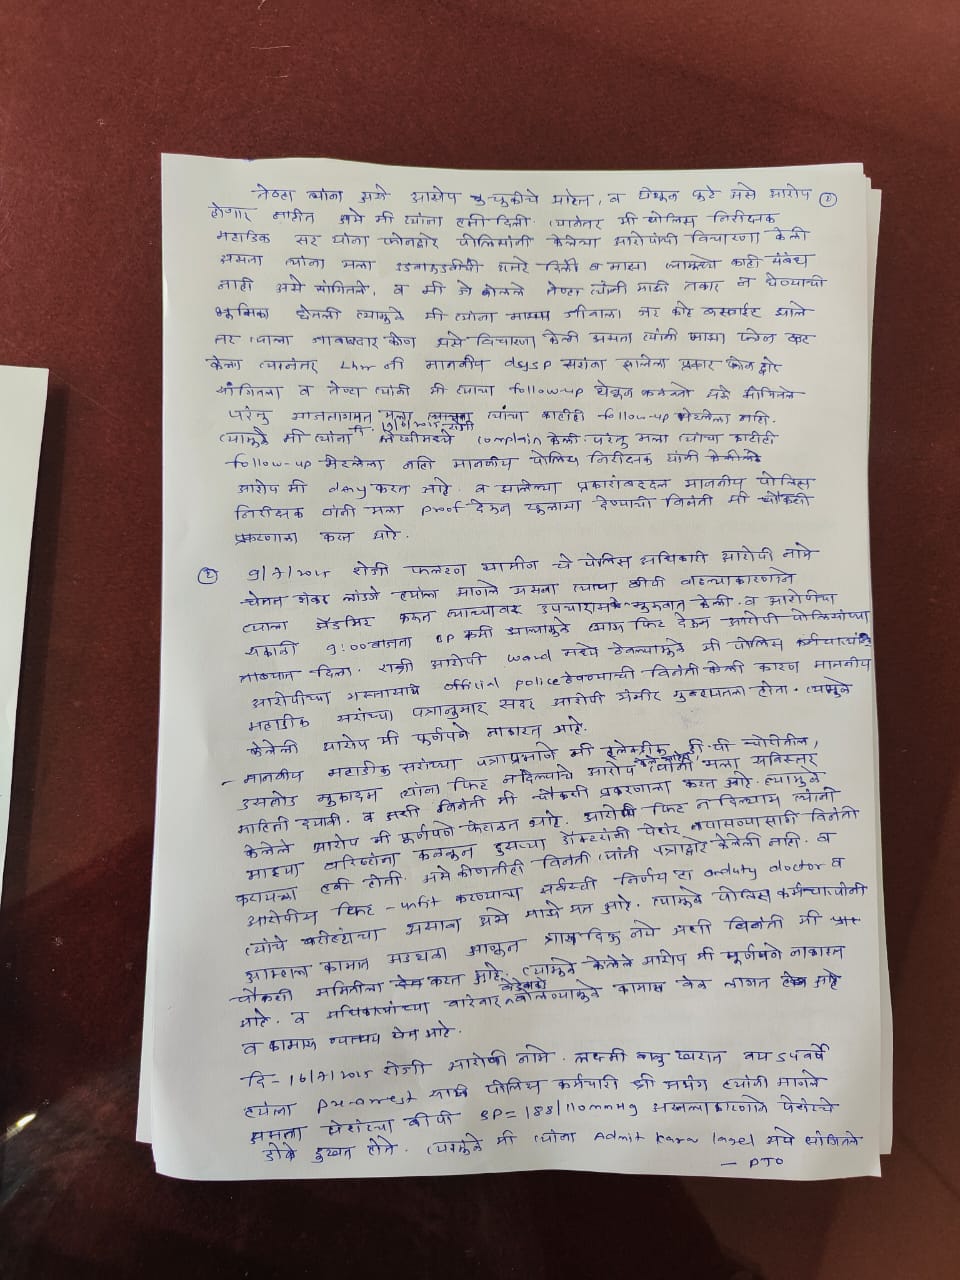 तेव्हा त्यांना असे आरोप चुकीचे आहेत, व येथून पुढे असे आरोप (१)
होणार नाहीत असे मी त्यांना हमी दिली. त्यानंतर मी पोलिस निरीक्षक
महाडिक सर यांना फोनद्वारे पोलिसांनी केलेल्या आरोपांची विचारणा केली
असता त्यांनी मला उडवाउडवीची उत्तरे दिली व माझा त्यामध्ये काही संबंध
नाही असे सांगितले, व मी जे बोलले तेव्हा त्यांनी माझी तक्रार न घेण्याची
भूमिका घेतली त्यामुळे मी त्यांना माझ्या जीवाला जर काही झाले
तर त्याला जबाबदार कोण असे विचारणा केली असता त्यांनी माझा फोन कट
केला त्यानंतर मी माननीय dysp सरांना झालेला प्रकार फोनद्वारे
सांगितला व तेव्हा त्यांनी मी त्याचा follow-up घेऊन कळवतो असे सांगितले
परंतु आजतागायत मला त्यांचा काहीही follow-up भेटलेला नाही.
त्यामुळे मी त्यांना दि. रोजी लेखीमध्ये complain केली. परंतु मला त्याचा काहीही
follow-up भेटलेला नाही माननीय पोलिस निरीक्षक यांनी केलेले
आरोप मी deny करत आहे. व झालेल्या प्रकाराबद्दल माननीय पोलिस
निरीक्षक यांनी मला proof देऊन खुलासा देण्याची विनंती मी चौकशी
प्रकरणाला करत आहे.
(२) 9/7/2025 रोजी फलटण ग्रामीण चे पोलिस अधिकारी आरोपी नामे
शंकर ह्याला आणले असता त्याचा बीपी वाढल्याकारणाने
त्याला अ‍ॅडमिट करून त्याच्यावर उपचारास सुरुवात केली. व आरोपीचा
सकाळी 9:00 वाजता BP कमी झाल्यामुळे त्यास फिट देऊन आरोपी पोलिसांच्या
ताब्यात दिला. रात्री आरोपी ward मध्ये ठेवल्यामुळे मी पोलिस कर्मचाऱ्यांना
आरोपीच्या official police ठेवण्याची विनंती केली कारण माननीय
महाडीक सरांच्या पत्रानुसार सदर आरोपी गंभीर गुन्ह्यातला होता. त्यामुळे
केलेली आरोप मी पूर्णपणे नाकारत आहे.
- माननीय महाडीक सरांच्या पत्राप्रमाणे मी इलेक्ट्रीक डी पी चोरीतील,
ऊसतोड मुकादम त्यांना फिट न दिल्याचे आरोप केले आहे, त्यांनी मला सविस्तर
माहिती द्यावी. व अशी विनंती मी चौकशी प्रकरणाला करत आहे. त्यामुळे
केलेले आरोप मी पूर्णपणे फेटाळत आहे. आरोपी फिट न दिल्यास त्यांनी
माझ्या वरिष्ठांना कळवून दुसऱ्या डॉक्टरांनी पेशंट तपासण्यासाठी विनंती
करायला हवी होती. असे कोणतीही विनंती त्यांनी पत्राद्वारे केलेली नाही. व
आरोपीस फिट - unfit करण्याचा सर्वस्वी निर्णय हा onduty doctor व
त्यांचे वरीष्ठांचा असावा असे माझे मत आहे. त्यामुळे पोलिस कर्मचाऱ्यांनी
आम्हाला कामात अडथळा आणून त्रास देऊ नये अशी विनंती मी
चौकशी समितीला करत आहे. त्यामुळे केलेले आरोप मी पूर्णपणे नाकारत
आहे. व अधिकाऱ्यांच्या वारंवार बोलण्यामुळे कामास वेळ लागत आहे
व कामास व्यत्यय येत आहे.
दि - 16/7/2025 रोजी आरोपी नामे. लक्ष्मी वय 54 वर्षे
ह्यांना Pre-arrest साठी पोलिस कर्मचारी श्री ह्यांनी आणले
असता पेशंटचा बीपी BP = 188/110mmHg असल्याकारणाने पेशंटचे
डोके दुखत होते. त्यामुळे मी त्यांना Admit karav lagel असे सांगितले
— PTO